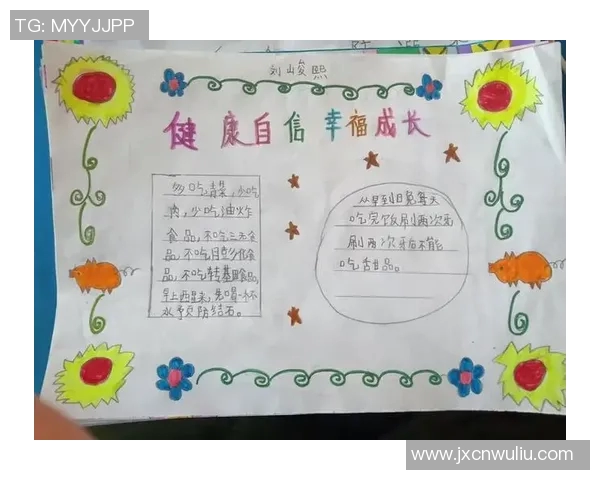 TG: MYYJJPP
刘峻熙
健康自信 幸福成长
多吃青菜，少吃
肉，少吃油炸
食品，不吃三无食
品，不吃膨化食
品，不吃转基因食品，
早上醒来，先喝一杯
水予防结石。
从早到晚每天
吃完饭刷两次牙
刷两次牙后不能
吃甜品。
www.jxcnwuliu.com